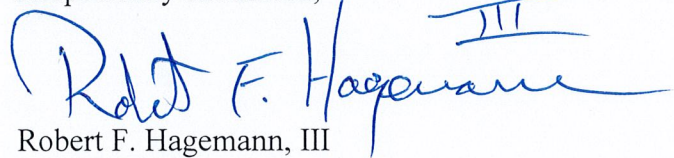 Robert F. Hagemann III
Robert F. Hagemann, III